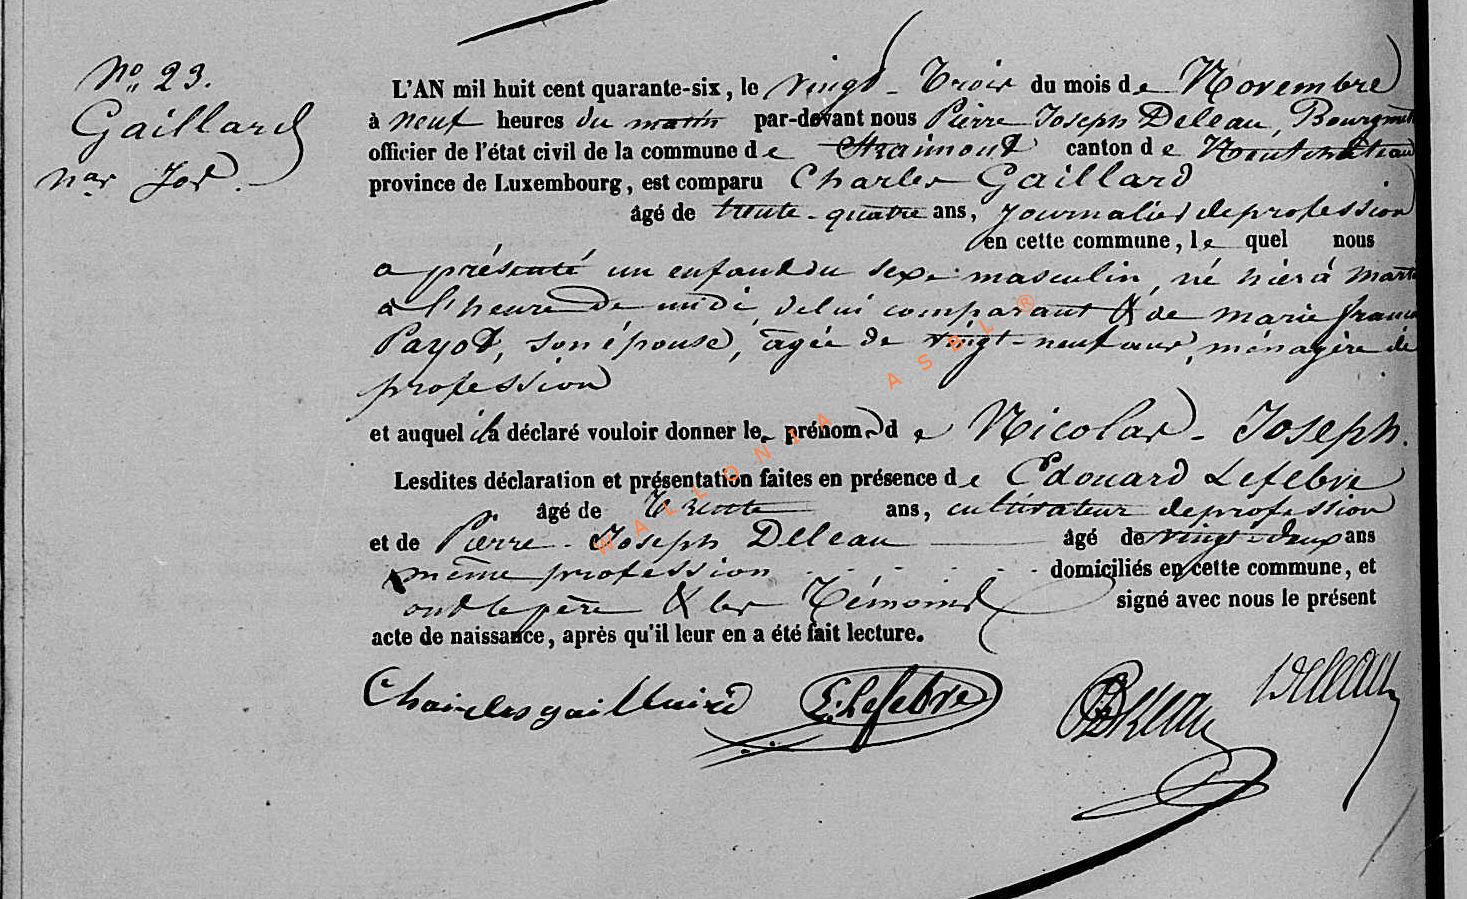 No 23.
Gaillard
nas Jos.
L'AN mil huit cent quarante-six, le vingt-Trois du mois de Novembre
à neuf heures du matin par-devant nous Pierre Joseph Deleau, Bourgmet
officier de l'état civil de la commune de Straimont canton de Neufchâteau
province de Luxembourg, est comparu Charles Gaillard
âgé de trente-quatre ans, journalier de profession
en cette commune, le quel nous
a présenté un enfant du sexe masculin, né hier à
à l'heure de midi, de lui comparant & de marie
Payot, son épouse, agée de vingt-neuf ans, ménagère de
profession
et auquel il a déclaré vouloir donner les prénoms de Nicolas-Joseph.
Lesdites déclaration et présentation faites en présence de Edouard Lefebvre
âgé de Trente ans, cultivateur de profession
et de Pierre-Joseph Deleau âgé de vingt-deux ans
même profession domiciliés en cette commune, et
ont le père & les Témoins signé avec nous le présent
acte de naissance, après qu'il leur en a été fait lecture.
E. Lefebvre
Deleau
WALLONIA ASBL ®